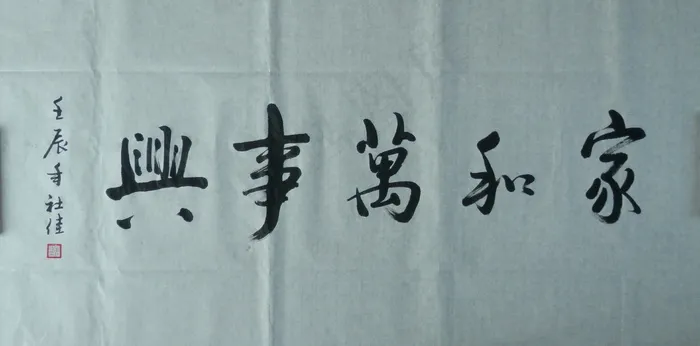 家和萬事興
壬辰年社佳